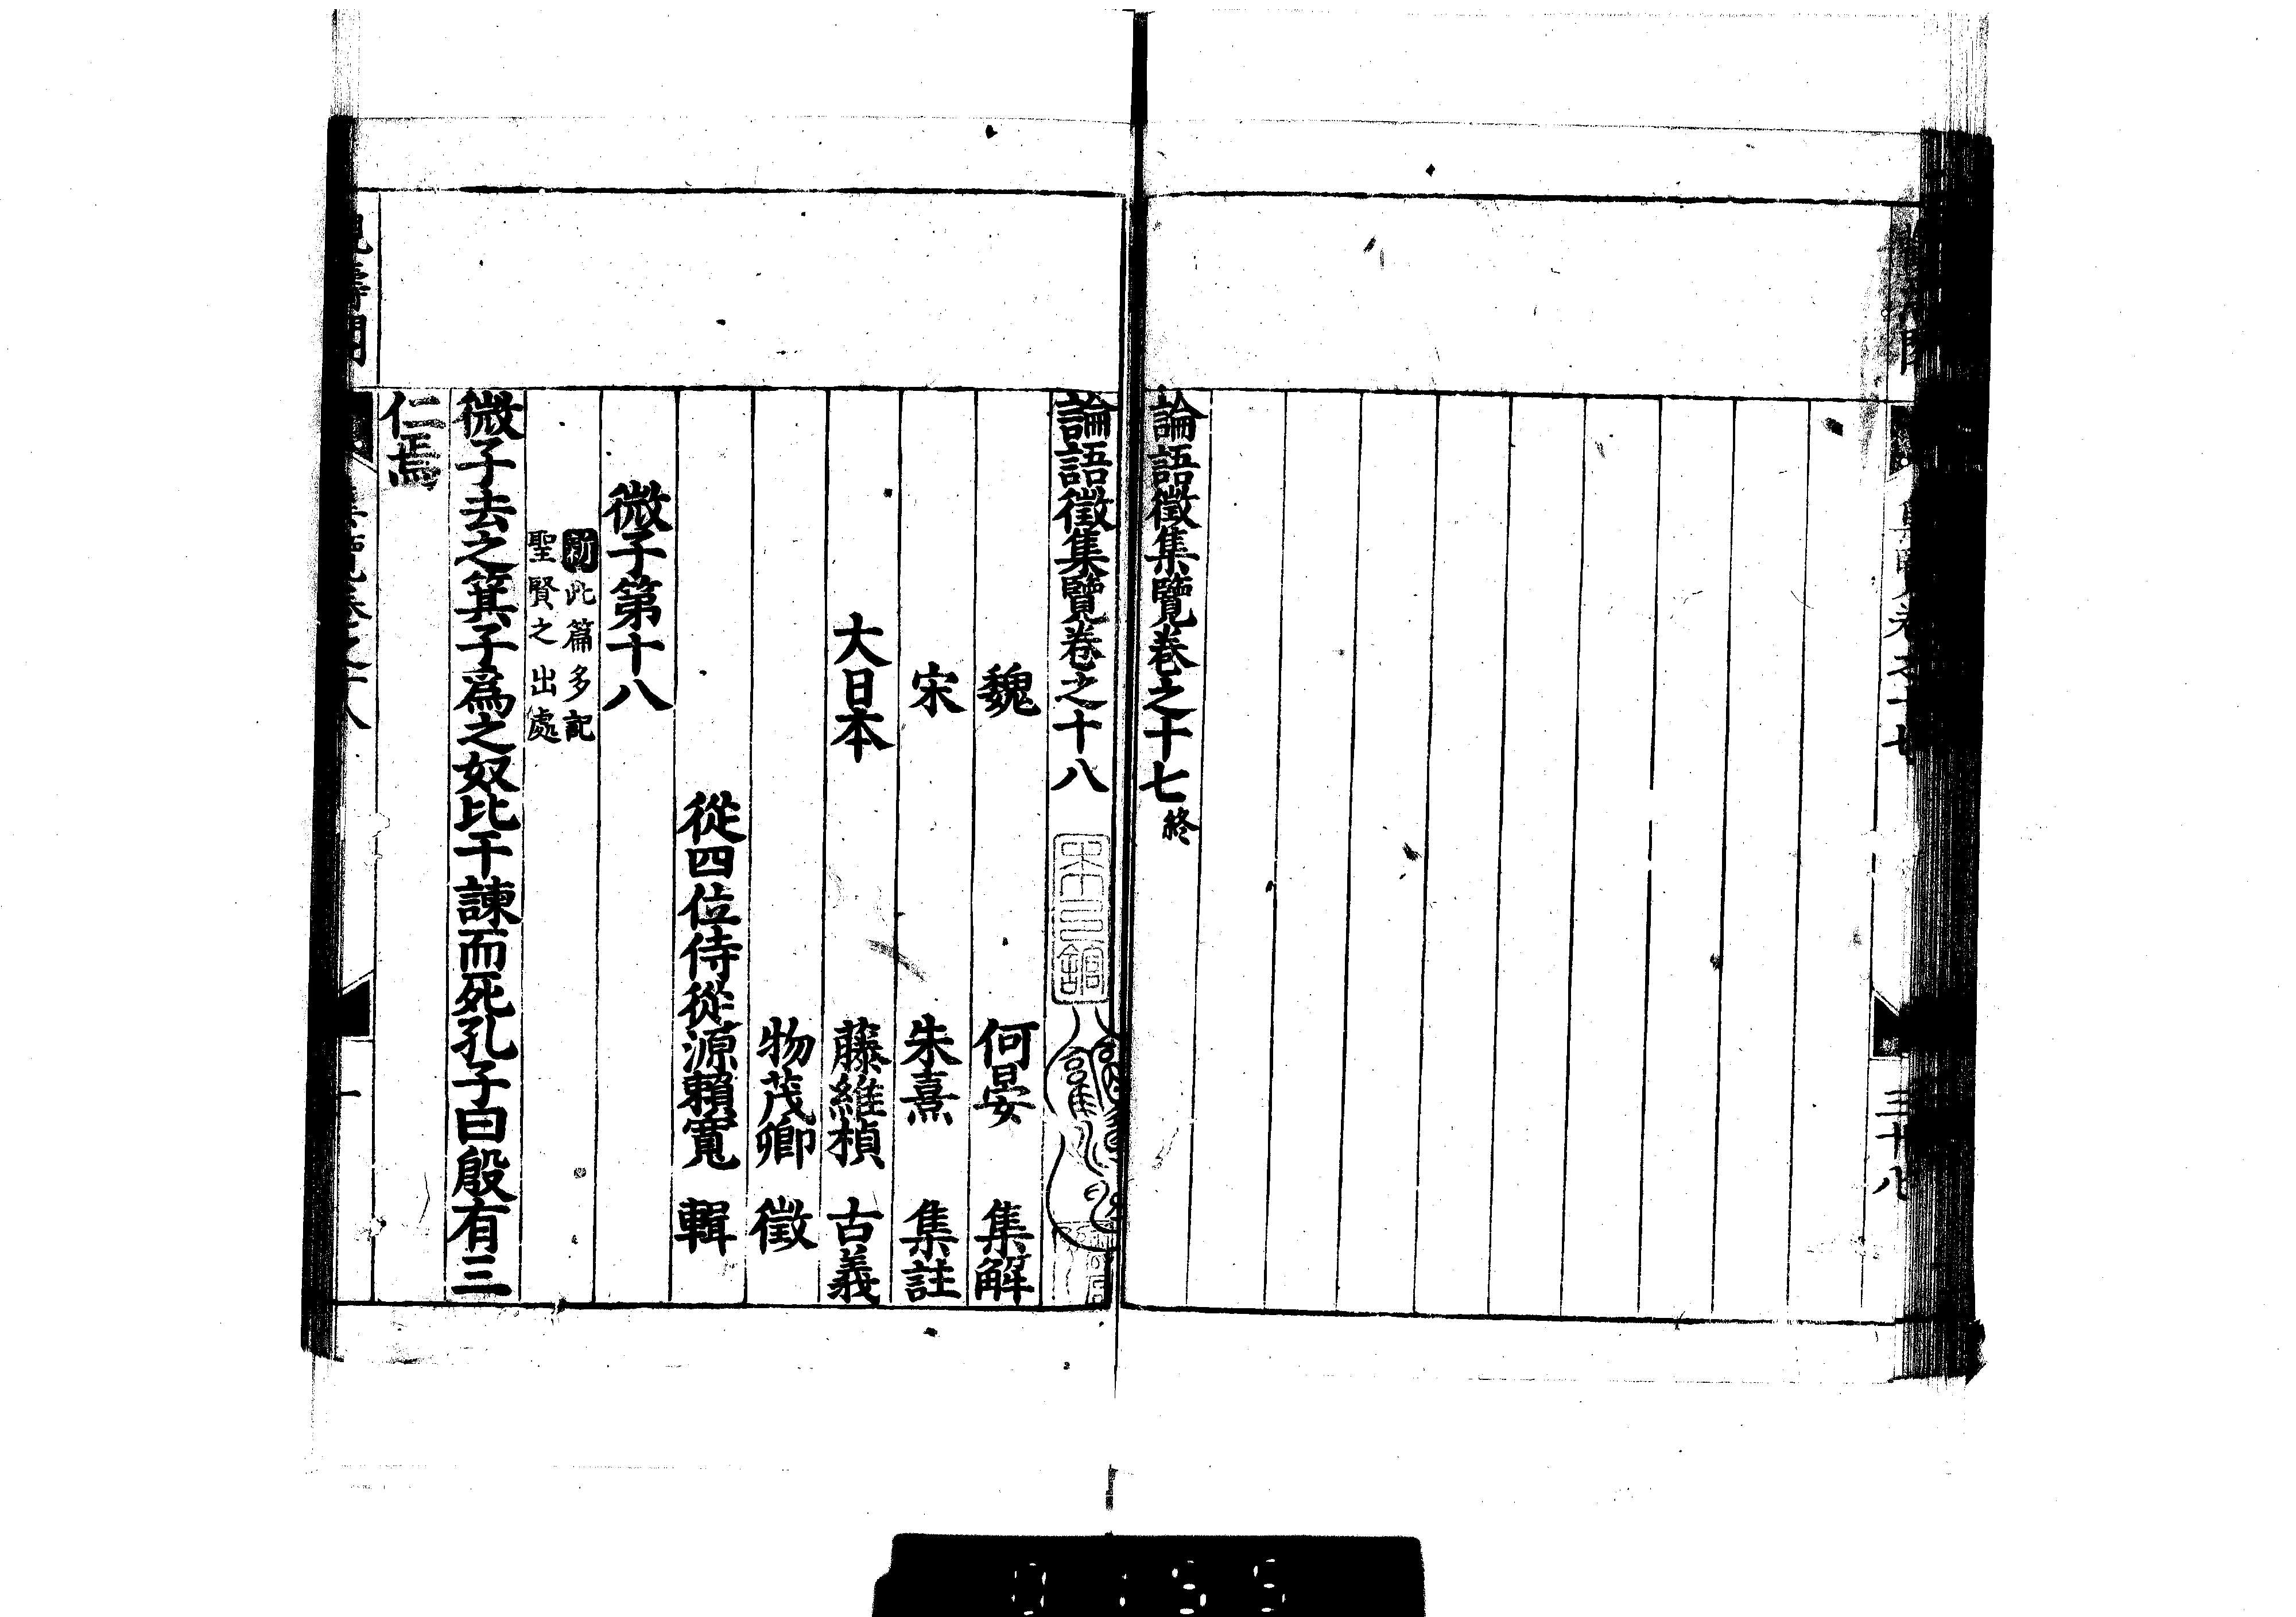 論語徵集覽卷之十七終
三十八
論語徵集覽卷之十八
魏 何晏 集解
宋 朱熹 集註
大日本 藤維楨 古義
物茂卿 徵
從四位侍從源賴寬 輯
微子第十八
此篇多記
聖賢之出處
微子去之箕子爲之奴比干諫而死孔子曰殷有三
仁焉
0155